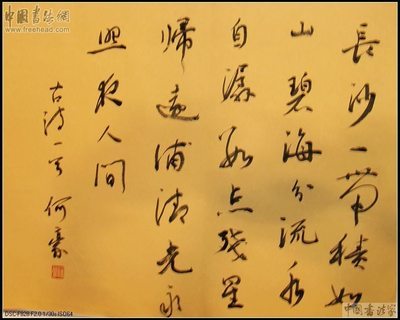 中國書法網
www.freehead.com
長沙一帶積如
山碧海分流水
自潺數点殘星
歸遠浦清光永
照夜人間
古詩一首 何豪
DSC-F828 F2.0 1/30s ISO64
中國書法